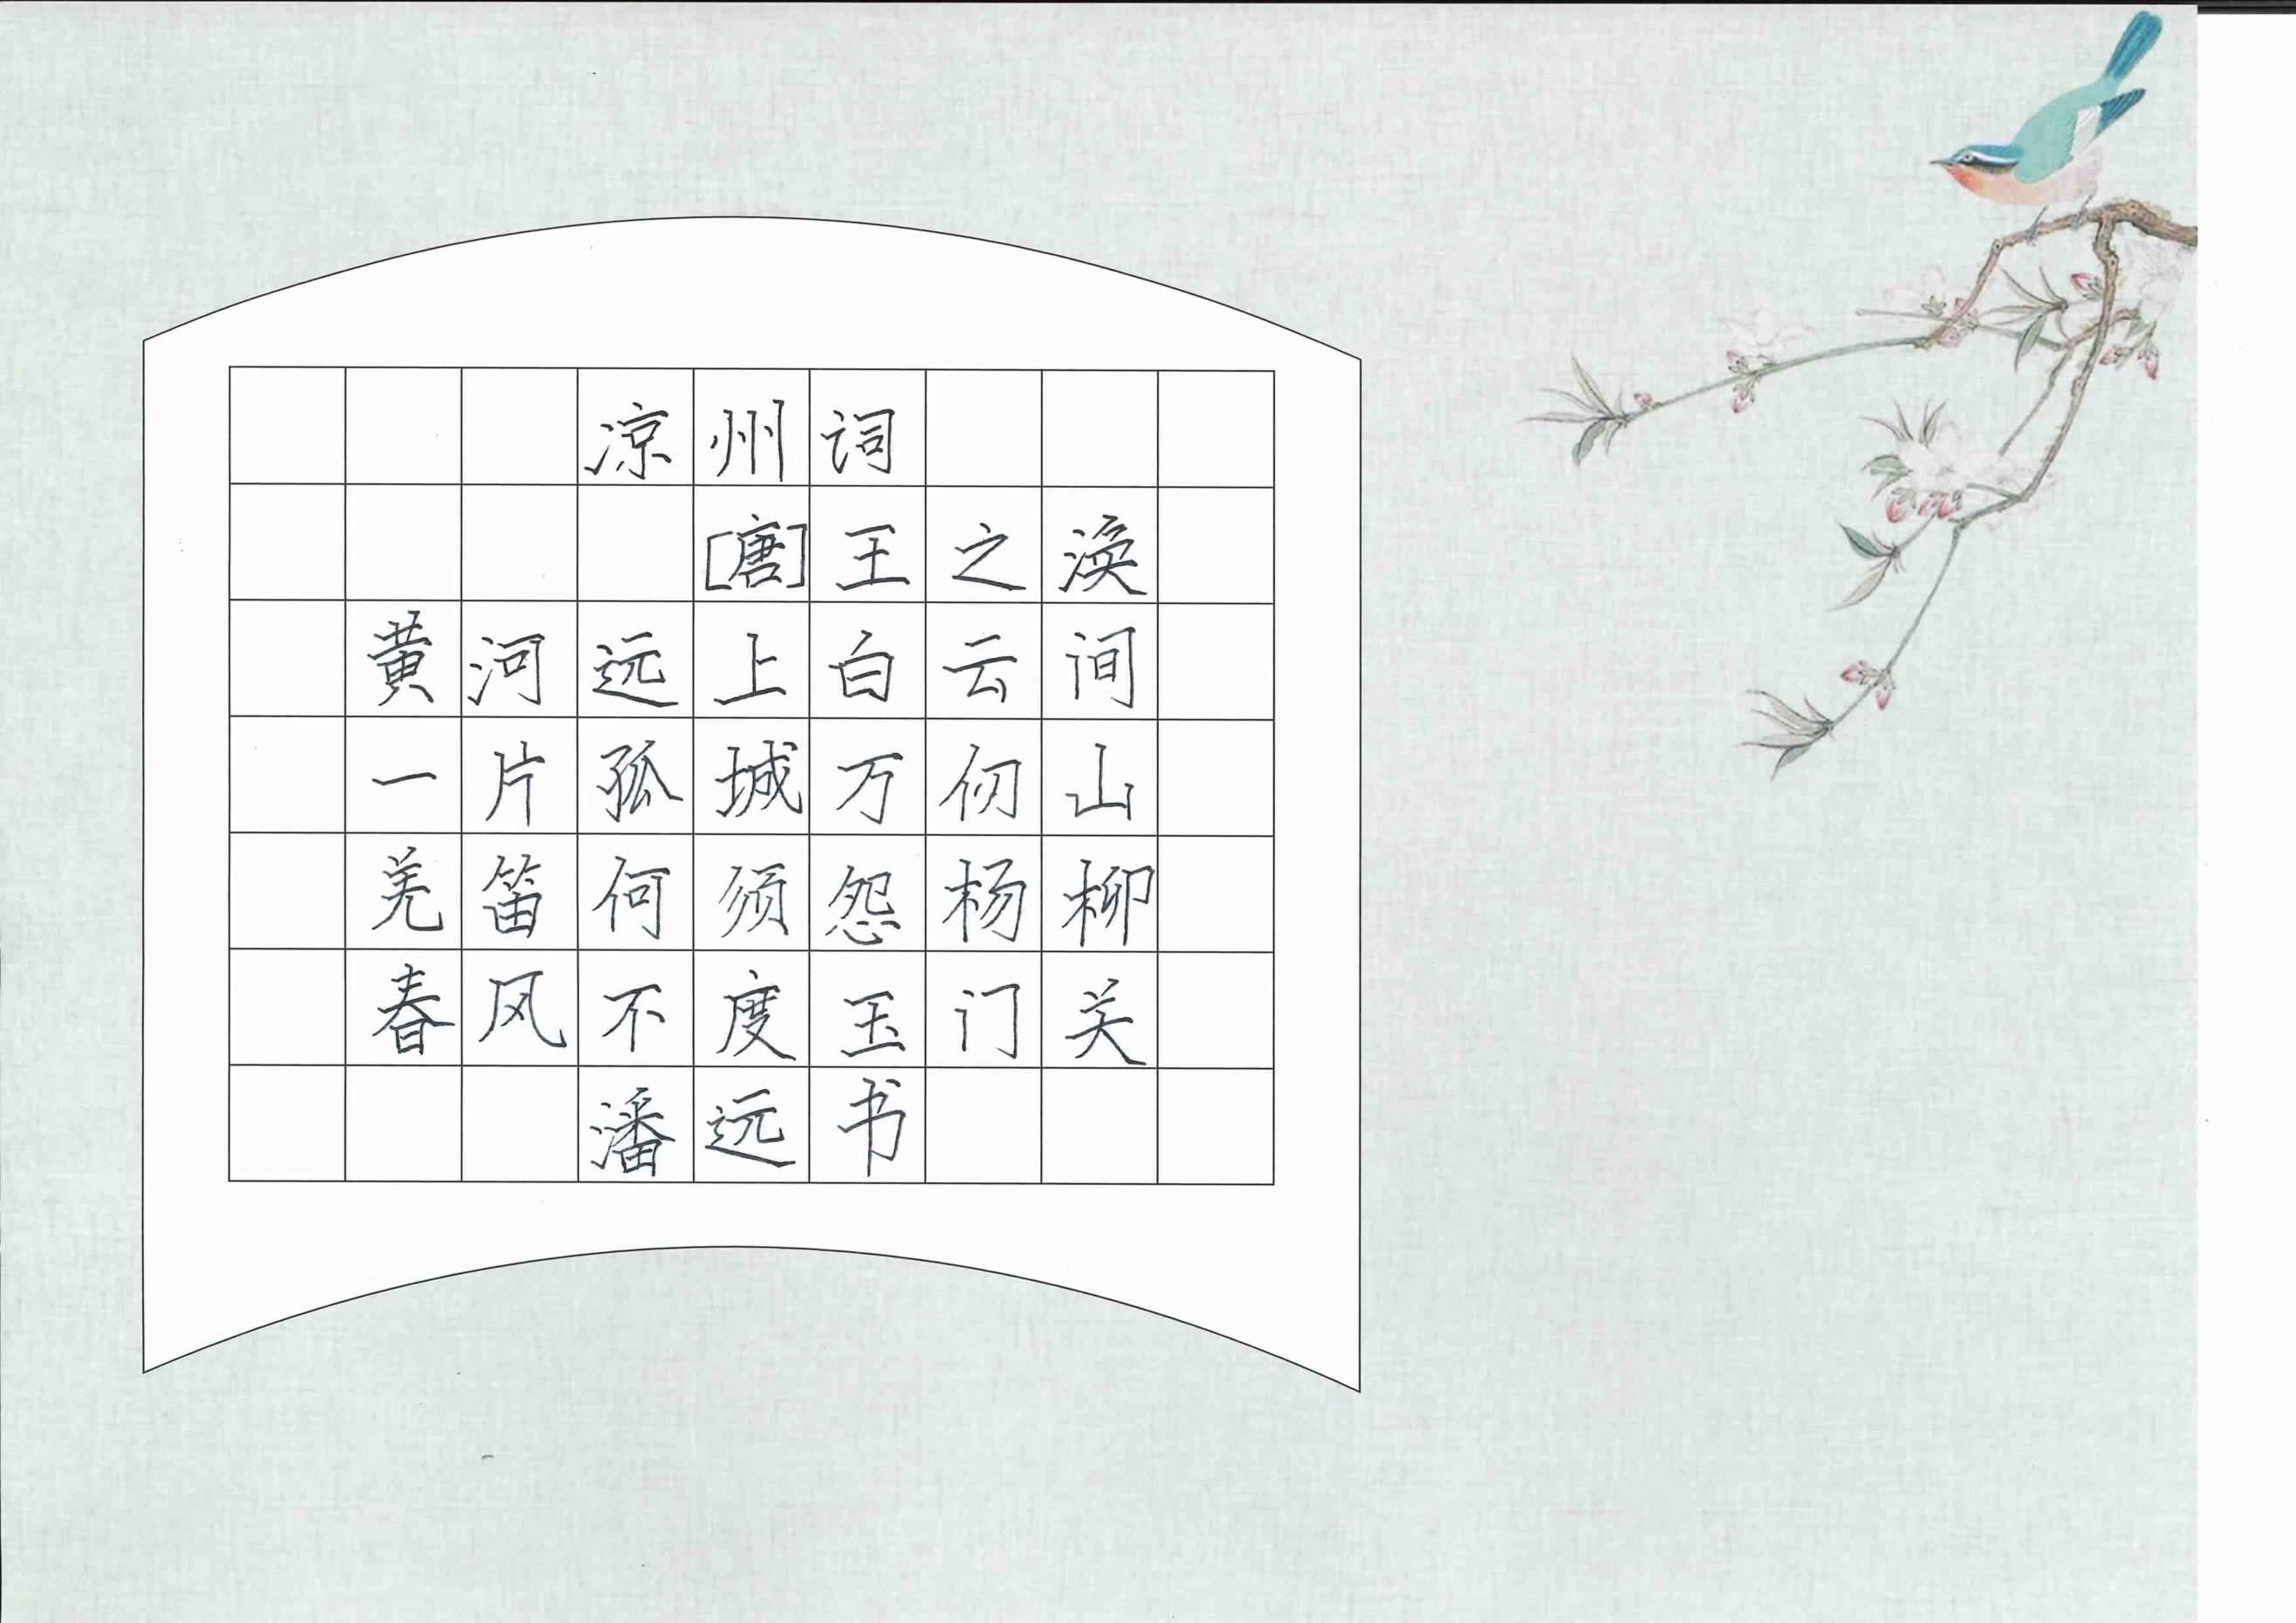 凉州词
[唐]王之涣
黄河远上白云间
一片孤城万仞山
羌笛何须怨杨柳
春风不度玉门关
潘远书